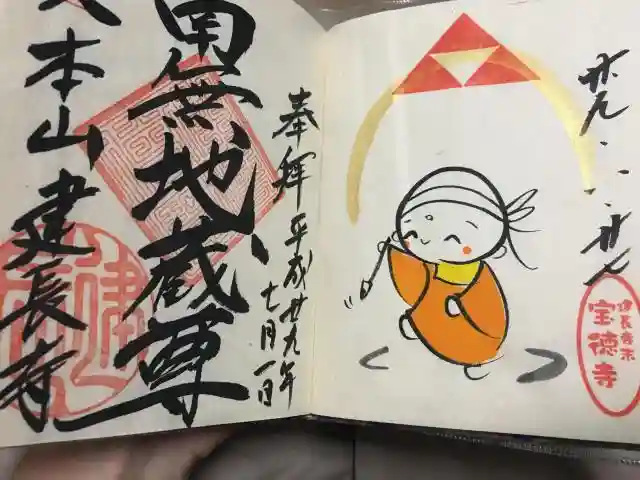 奉拝 平成廿九年
七月一日
南無地蔵尊
大本山 建長寺
建長寺末
宝徳寺